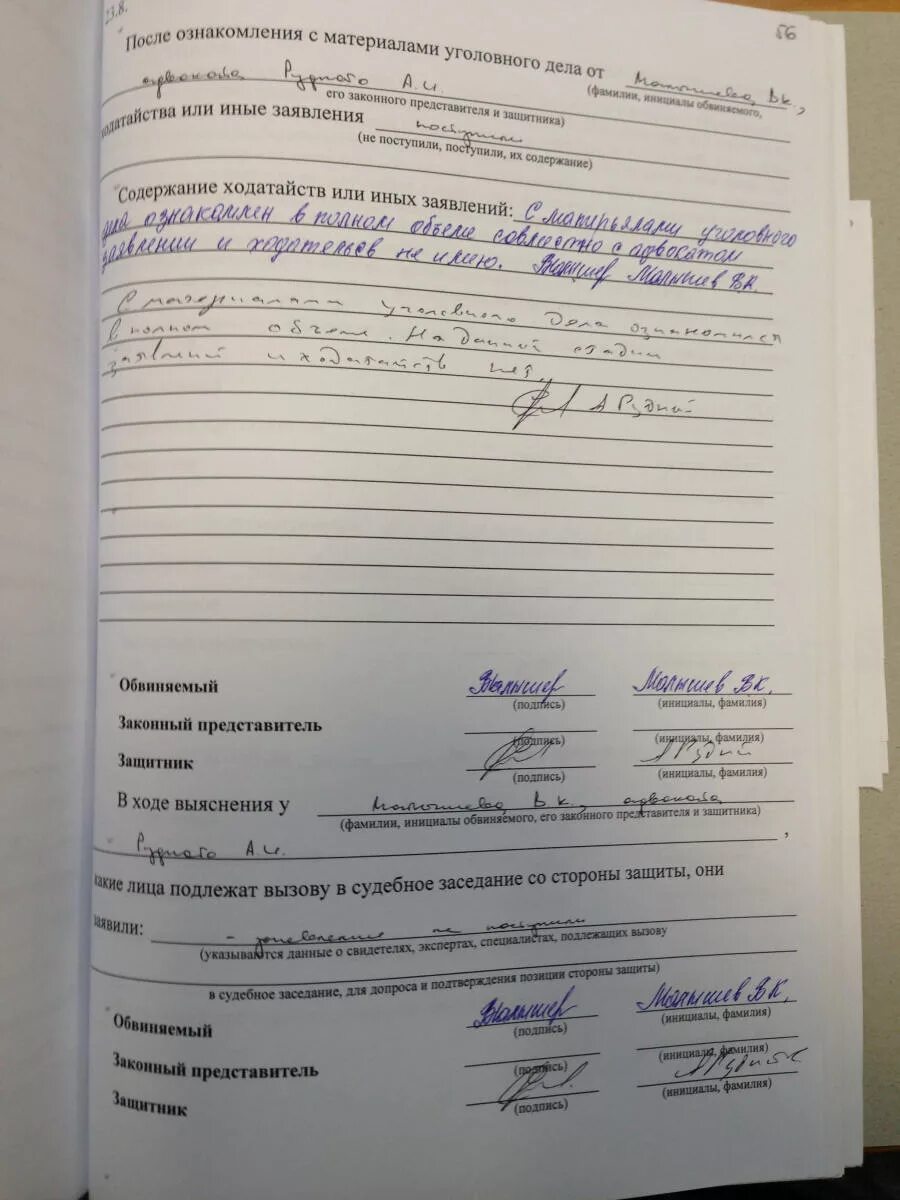 23.8.
56
После ознакомления с материалами уголовного дела от Малышева В.К.,
(фамилии, инициалы обвиняемого,
адвоката Рудного А.И.
его законного представителя и защитника)
ходатайства или иные заявления поступили
(не поступили, поступили, их содержание)
Содержание ходатайств или иных заявлений: С матирьялами уголовного
дела ознакомлен в полном объеме совместно с адвокатом
заявлении и ходательсв не имею. Малышев В.К.
С материалами уголовного дела ознакомился
в полном объеме. На данной стадии
заявлений и ходатайств нет.
А Рудной
Обвиняемый Малышев В.К.
(подпись) (инициалы, фамилия)
Законный представитель
(подпись) (инициалы, фамилия)
Защитник А Рудной
(подпись) (инициалы, фамилия)
В ходе выяснения у Малышева В.К., адвоката
(фамилии, инициалы обвиняемого, его законного представителя и защитника)
Рудного А.И. ,
какие лица подлежат вызову в судебное заседание со стороны защиты, они
заявили: - не поступили
(указываются данные о свидетелях, экспертах, специалистах, подлежащих вызову
в судебное заседание, для допроса и подтверждения позиции стороны защиты)
Обвиняемый Малышев В.К.
(подпись) (инициалы, фамилия)
Законный представитель
(подпись) (инициалы, фамилия)
Защитник
(подпись) (инициалы, фамилия)